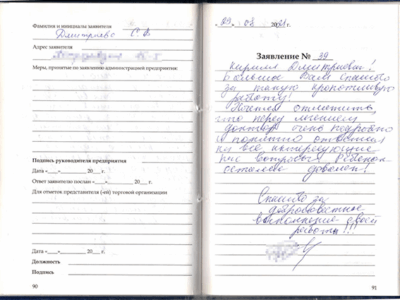 Фамилия и инициалы заявителя
Дмитриево С. А.
Адрес заявителя
Меры, принятые по заявлению администрацией предприятия:
Подпись руководителя предприятия
Дата «___» ________ 20___ г.
Ответ заявителю послан «___» ________ 20___ г.
Для отметок представителя (-ей) торговой организации
Дата «___» ________ 20___ г.
Должность
Подпись
90
Заявление № 39
Кирилл Дмитриевич!
Большое Вам спасибо
за такую кропотливую
работу!
Хочется отметить,
что перед лечением
доктор очень подробно
и понятно ответил
на все интересующие
нас вопросы. Ребенок
остался доволен!
Спасибо за
добросовестное
выполнение своей
работы!!!
91